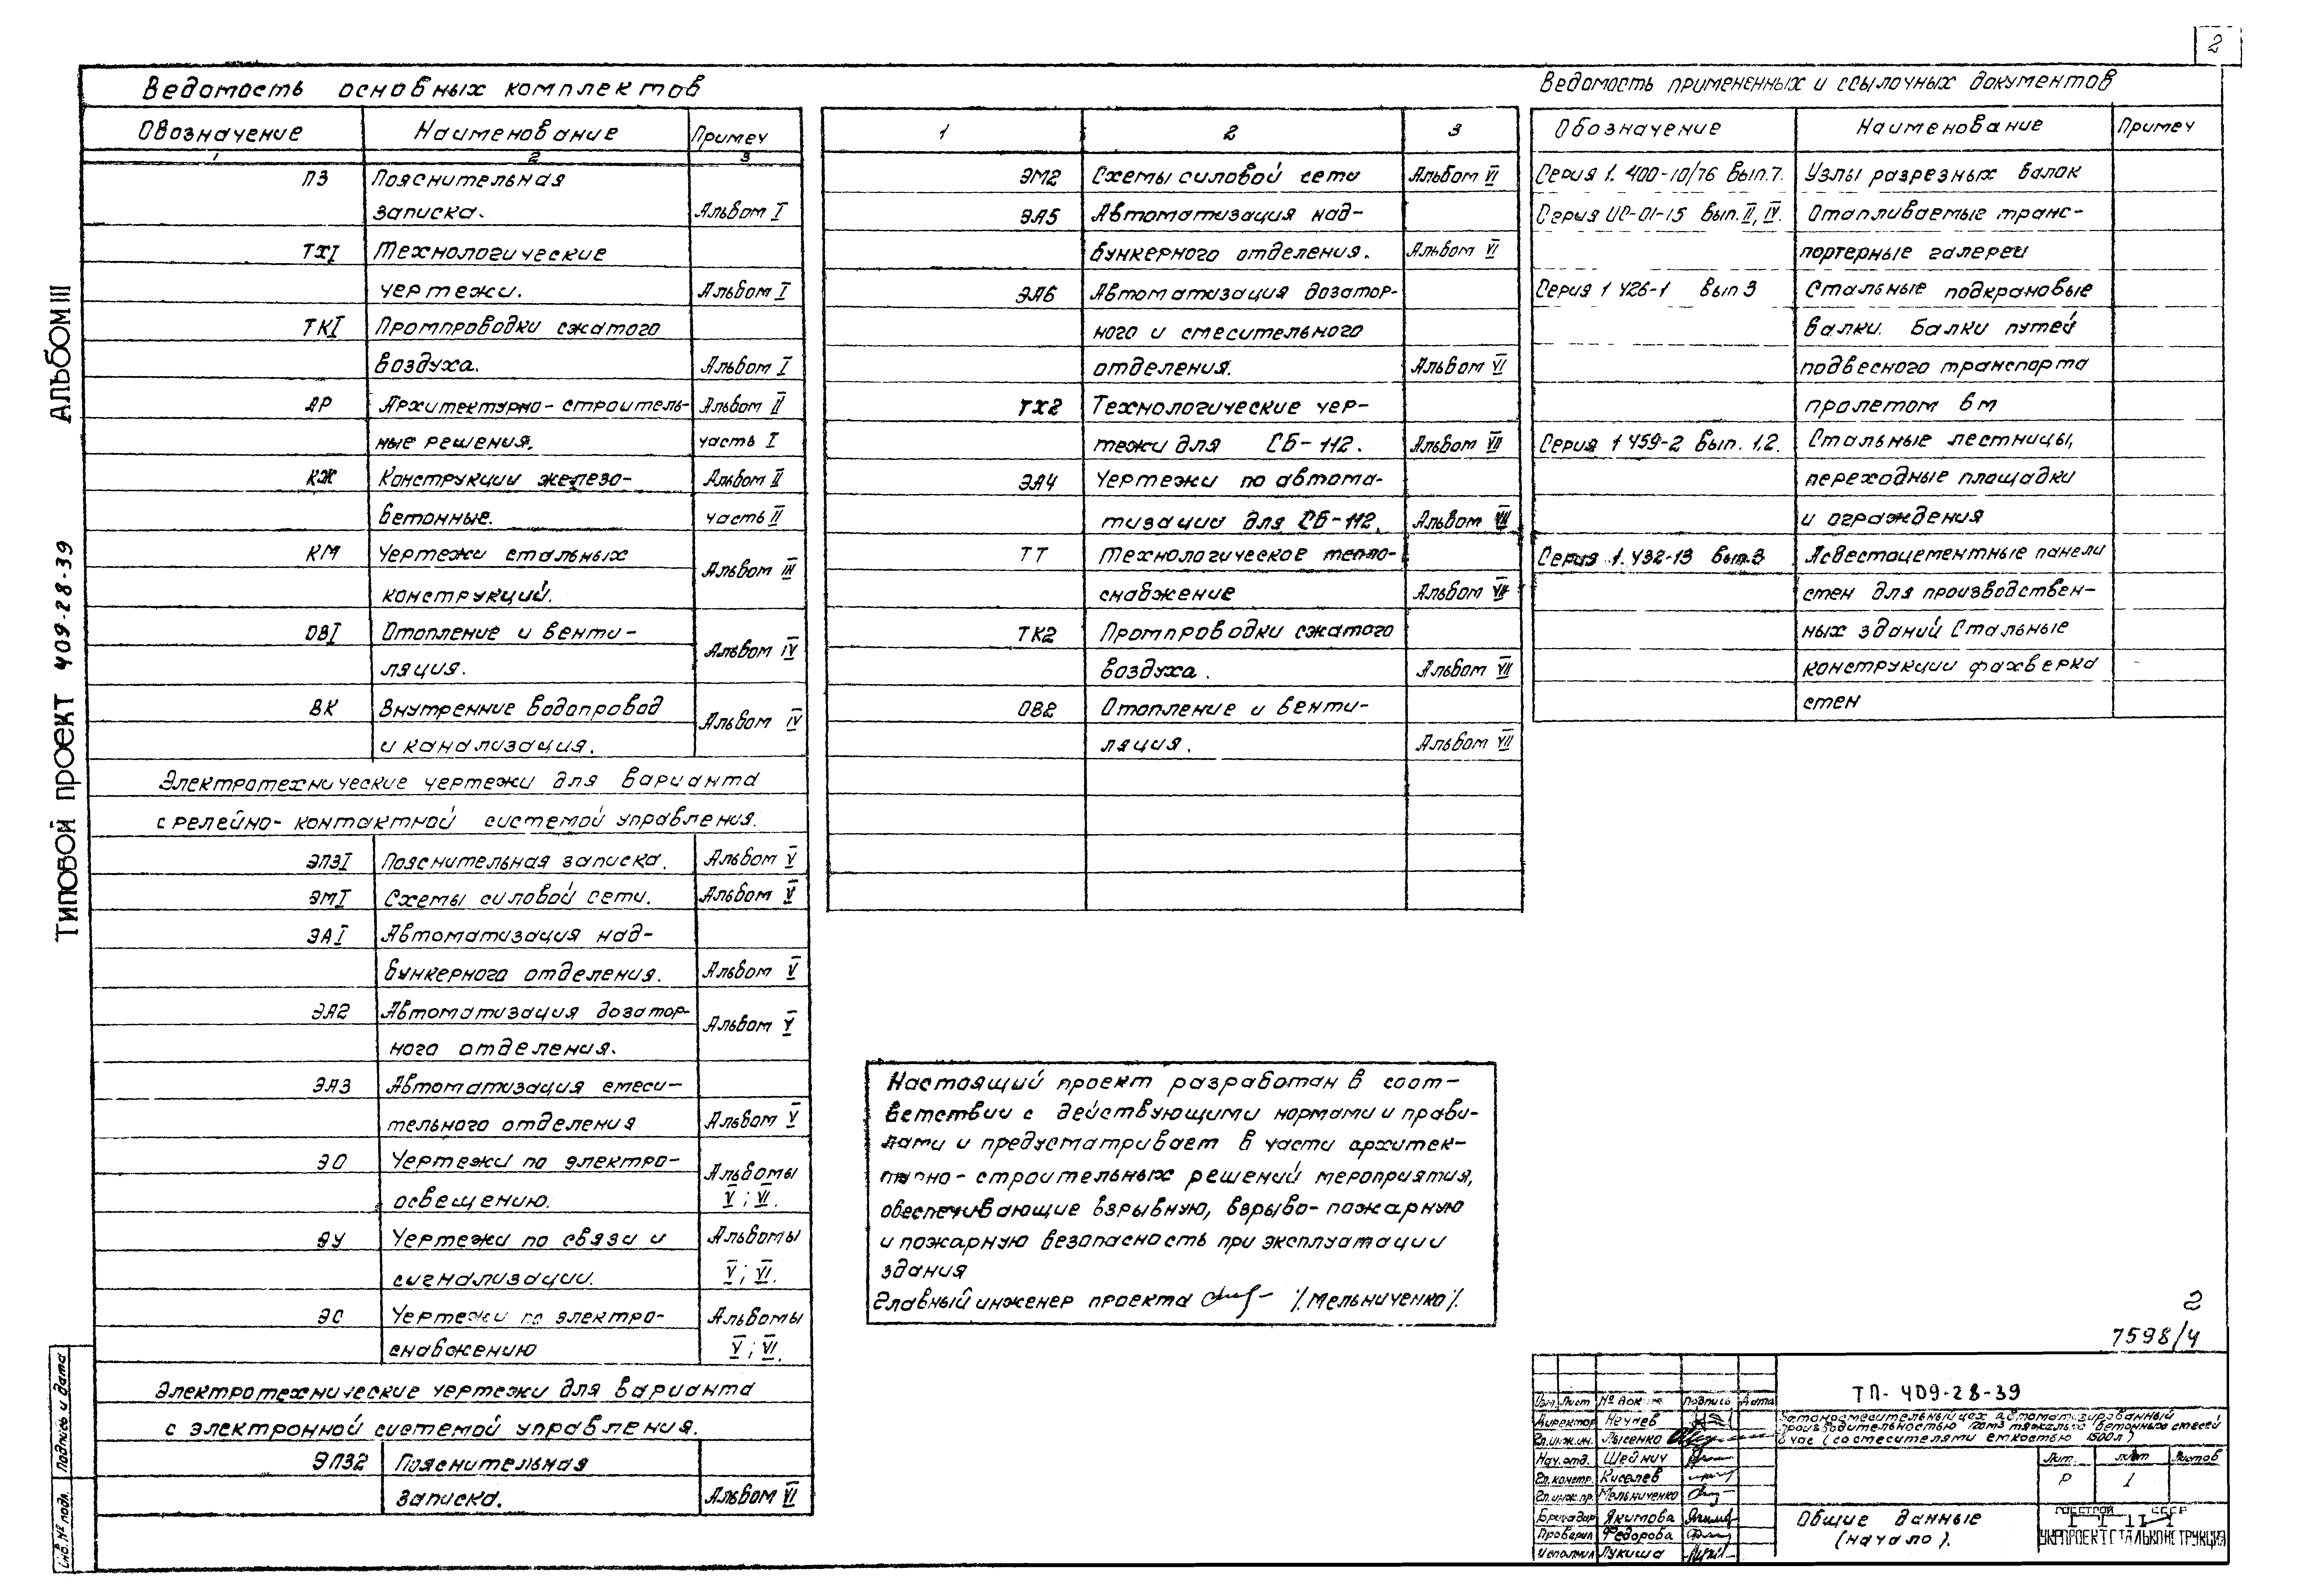 2
АЛЬБОМ III
ТИПОВОЙ ПРОЕКТ 409-28-39
Ведомость основных комплектов
Обозначение Наименование Примеч
1 2 3
ПЗ Пояснительная
записка. Альбом I
ТХI Технологические
чертежи. Альбом I
ТКI Промпроводки сжатого
воздуха. Альбом I
АР Архитектурно-строитель- Альбом II
ные решения. часть I
КЖ Конструкции железо- Альбом II
бетонные. часть II
КМ Чертежи стальных
Альбом III
конструкций.
ОВI Отопление и венти-
Альбом IV
ляция.
ВК Внутренние водопровод
Альбом IV
и канализация.
Электротехнические чертежи для варианта
с релейно-контактной системой управления.
ЭПЗI Пояснительная записка. Альбом V
ЭМI Схемы силовой сети. Альбом V
ЭАI Автоматизация над-
бункерного отделения. Альбом V
ЭА2 Автоматизация дозатор-
Альбом V
ного отделения.
ЭА3 Автоматизация смеси-
тельного отделения Альбом V
ЭО Чертежи по электро-
Альбомы
освещению. V; VI.
ЭУ Чертежи по связи и Альбомы
сигнализации. V; VI.
ЭС Чертежи по электро- Альбомы
снабжению V; VI.
Электротехнические чертежи для варианта
с электронной системой управления.
ЭПЗ2 Пояснительная
записка. Альбом VI
1 2 3
ЭМ2 Схемы силовой сети Альбом VI
ЭА5 Автоматизация над-
бункерного отделения. Альбом VI
ЭА6 Автоматизация дозатор-
ного и смесительного
отделения. Альбом VI
ТХ2 Технологические чер-
тежи для СБ-112. Альбом VII
ЭА4 Чертежи по автома-
тизации для СБ-112. Альбом VII
ТТ Технологическое тепло-
снабжение Альбом VII
ТК2 Промпроводки сжатого
воздуха. Альбом VII
ОВ2 Отопление и венти-
ляция. Альбом VII
Ведомость примененных и ссылочных документов
Обозначение Наименование Примеч
Серия 1.400-10/76 Вып.7. Узлы разрезных балок
Серия ИС-01-15 Вып. II, IV. Отапливаемые транс-
портерные галереи
Серия 1 426-1 Вып 3 Стальные подкрановые
балки. Балки путей
подвесного транспорта
пролетом 6м
Серия 1 459-2 Вып. 1,2. Стальные лестницы,
переходные площадки
и ограждения
Серия 1.432-13 Вып.3 Асбестоцементные панели
стен для производствен-
ных зданий Стальные
конструкции фахверка
стен
Настоящий проект разработан в соот-
ветствии с действующими нормами и прави-
лами и предусматривает в части архитек-
турно-строительных решений мероприятия,
обеспечивающие взрывную, взрыво-пожарную
и пожарную безопасность при эксплуатации
здания
Главный инженер проекта /Мельниченко/.
2
7598/4
ТП-409-28-39
Изм. Лист № док Подпись Дата
Бетоносмесительный цех автоматизированный
производительностью тяжелых бетонных смесей
в час (со смесителями емкостью 1500л)
Директор Нечаев
Гл.инж.ин. Лысенко
Нач.отд. Шейнич
Гл.констр. Киселев
Гл.инж.пр. Мельниченко
Бригадир Якимова
Проверил Федорова
Исполнил Лукиша
Лит. Лист Листов
Р 1
Общие данные
(начало).
ГОССТРОЙ СССР
УКРПРОЕКТСТАЛЬКОНСТРУКЦИЯ
Подпись и дата
Инв.№ подл.